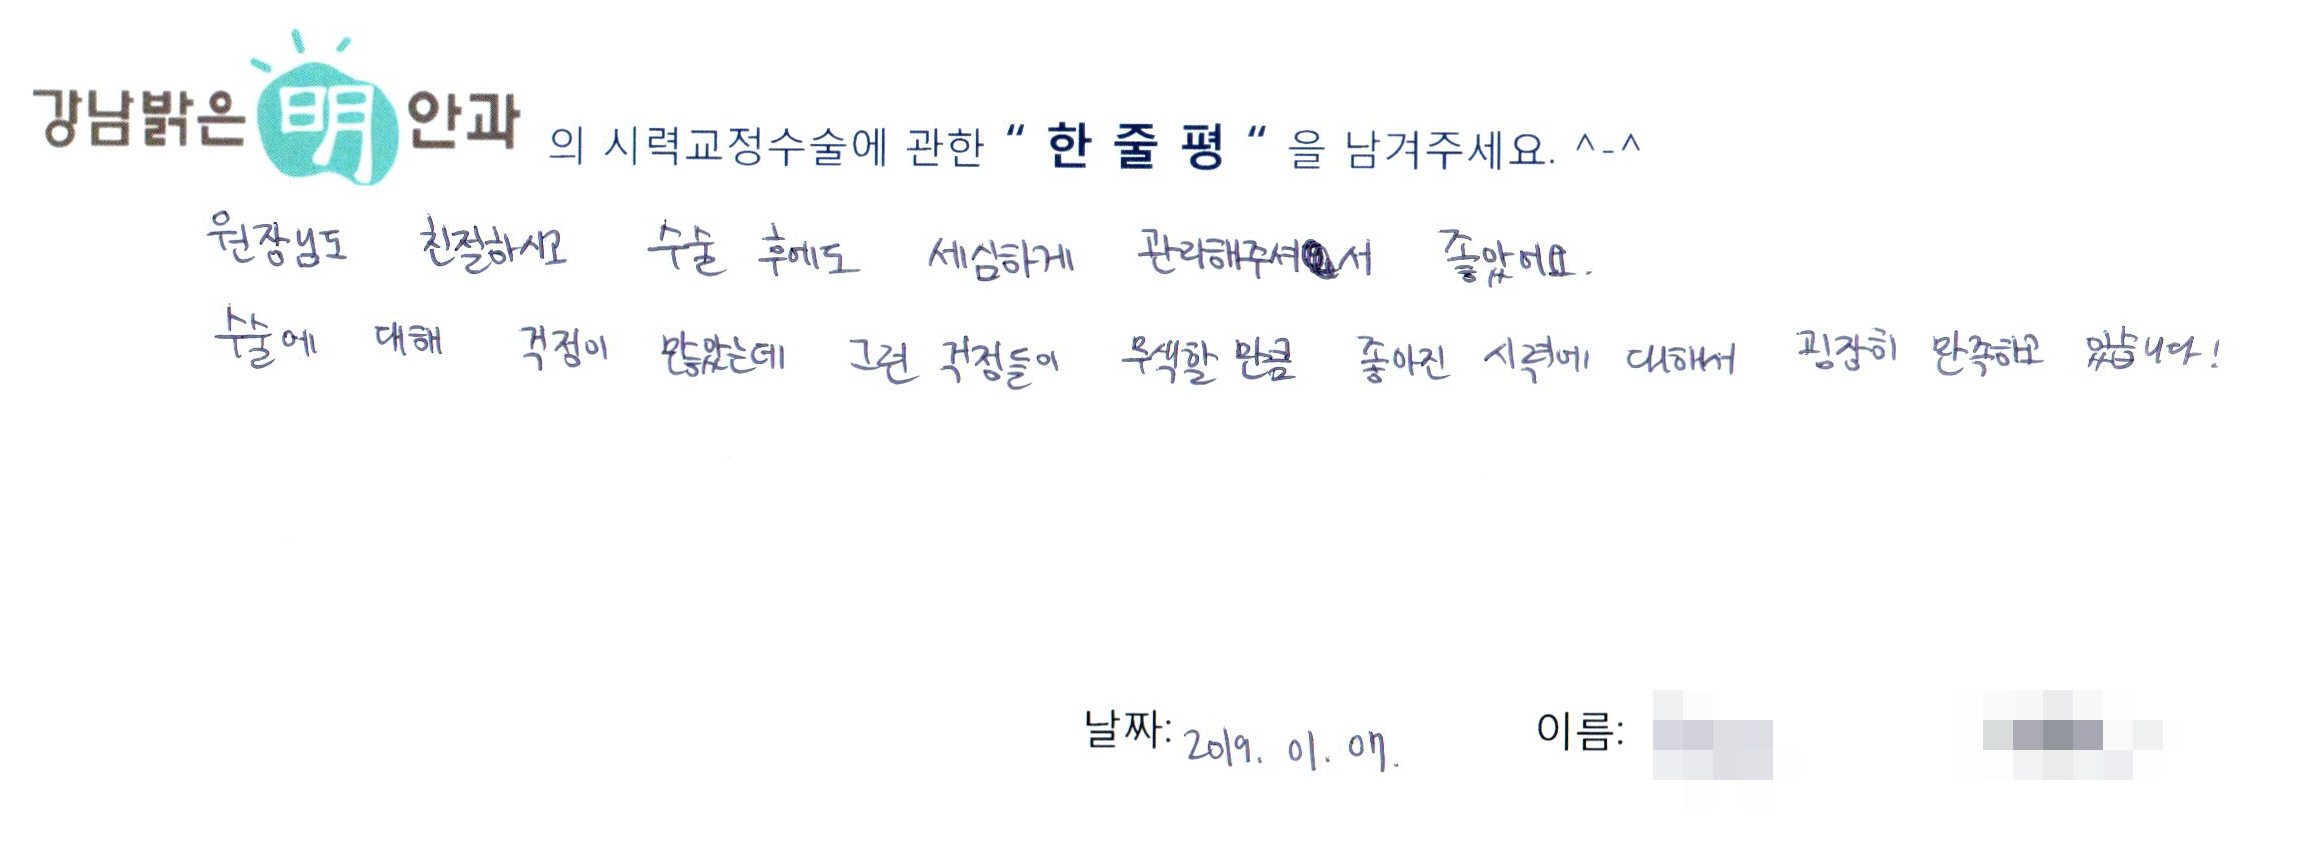 강남밝은 明 안과 의 시력교정수술에 관한 “ 한 줄 평 “ 을 남겨주세요. ^-^
원장님도 친절하시고 수술 후에도 세심하게 관리해주셔서 좋았어요.
수술에 대해 걱정이 많았는데 그런 걱정들이 무색할 만큼 좋아진 시력에 대해서 굉장히 만족하고 있습니다!
날짜: 2019. 01. 07. 이름: